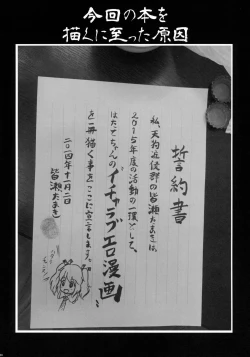 今回の本を
描くに至った原因
誓約書
私、天狗近侍部の皆瀬たまきは、
2015年度の活動の一環として、
はたてちゃんのイチャラブエロ漫画
を一冊描く事をここに宣言します。
二〇一四年十一月二日
皆瀬たまき